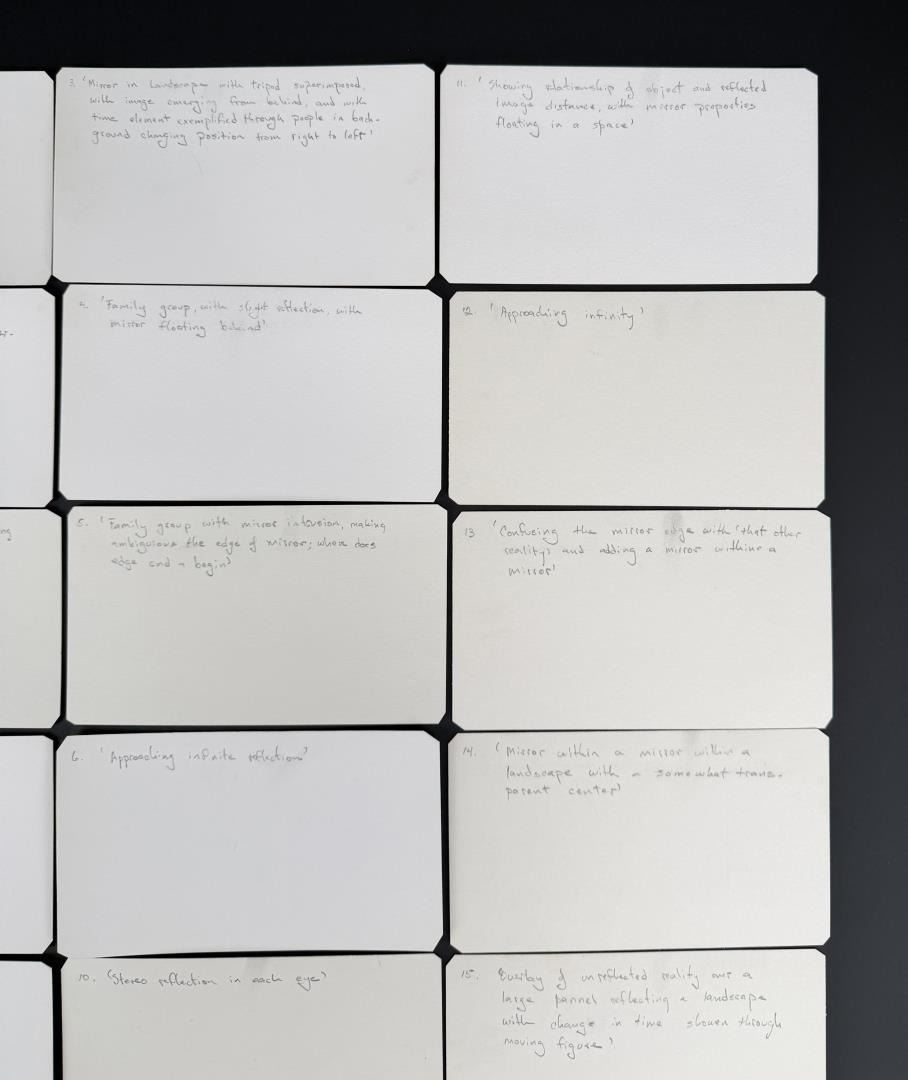 3. 'Mirror in Landscape with tripod superimposed,
with image emerging from behind, and with
time element exemplified through people in back-
ground changing position from right to left'
4. 'Family group, with slight reflection, with
mirror floating behind'
5. 'Family group with mirror intrusion, making
ambiguious the edge of mirror; where does
edge end + begin'
6. 'Approaching infinite reflection'
10. 'Stereo reflection in each eye'
11. 'Showing relationship of object and reflected
image distance, with mirror properties
floating in a space'
12. 'Approaching infinity'
13 'Confusing the mirror edge with 'that other
reality' and adding a mirror within a
mirror'
14. 'Mirror within a mirror within a
landscape with a somewhat trans-
parent center'
15. Overlay of unreflected reality over a
large pannel reflecting a landscape
with change in time shown through
moving figure'
ng